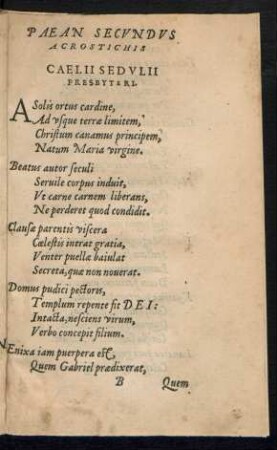 PAEAN SECVNDVS
ACROSTICHIS
CAELII SEDVLII
PRESBYTERI.
A Solis ortus cardine,
Ad vsque terræ limitem,
Christum canamus principem,
Natum Maria virgine.
Beatus autor seculi
Seruile corpus induit,
Vt carne carnem liberans,
Ne perderet quod condidit.
Clausæ parentis viscera
Cælestis intrat gratia,
Venter puellæ baiulat
Secreta, quæ non nouerat.
Domus pudici pectoris,
Templum repente fit DEI:
Intacta, nesciens virum,
Verbo concepit filium.
Enixa iam puerpera est,
Quem Gabriel prædixerat,
B Quem